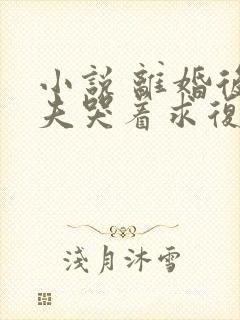 小說 離婚後
夫哭着求復
淺月沐雪